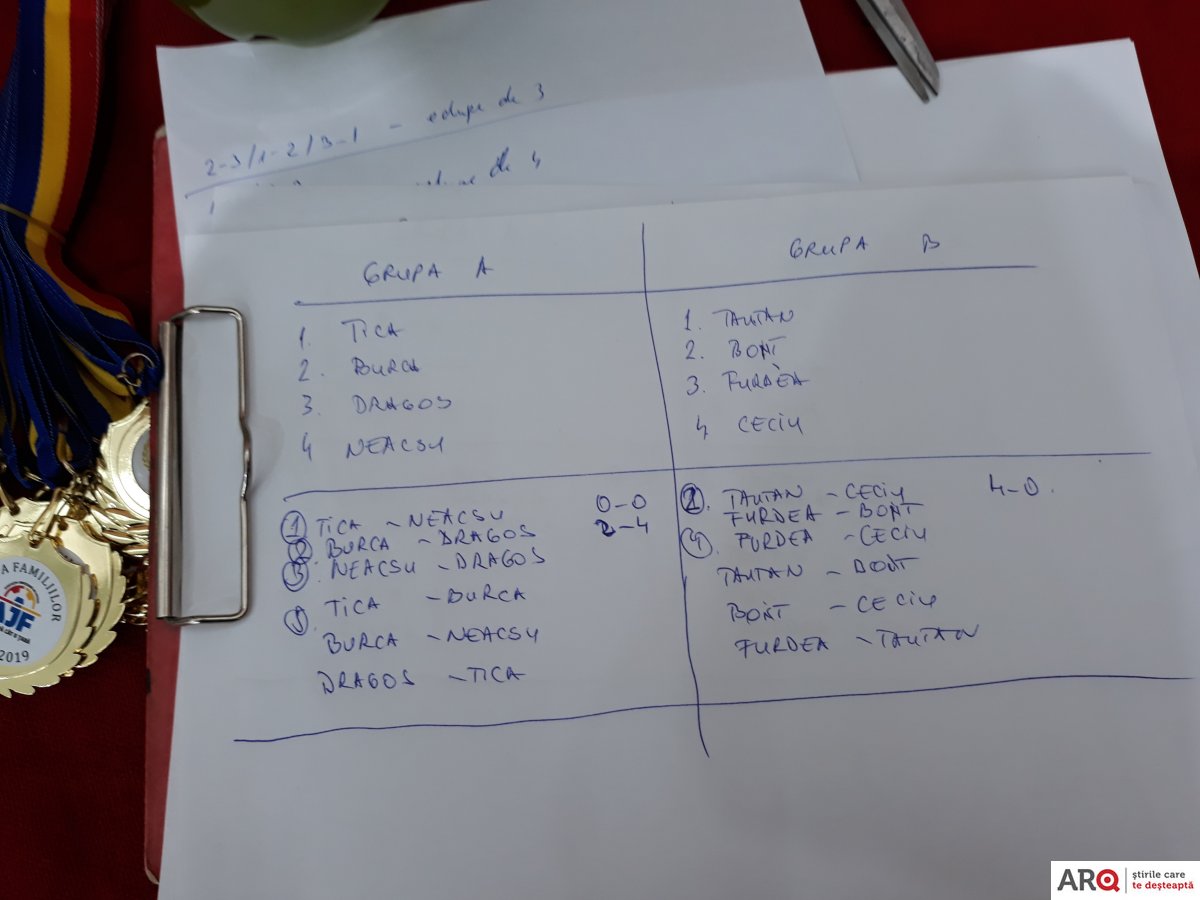 2-3/1-2/3-1 - echipe de 3
de 4
1
GRUPA A
1. TICA
2. BURCA
3. DRAGOS
4 NEACSU
GRUPA B
1. TAUTAN
2. BONT
3. FURDEA
4 CECIU
1 TICA - NEACSU 0-0
2 BURCA - DRAGOS 2-4
3. NEACSU - DRAGOS
TICA - BURCA
BURCA - NEACSU
DRAGOS - TICA
TAUTAN - CECIU 4-0.
FURDEA - BONT
4. FURDEA - CECIU
TAUTAN - BONT
BONT - CECIU
FURDEA - TAUTAN
A FAMILIILOR
AJF
2019
ARQ știrile care
te deșteaptă